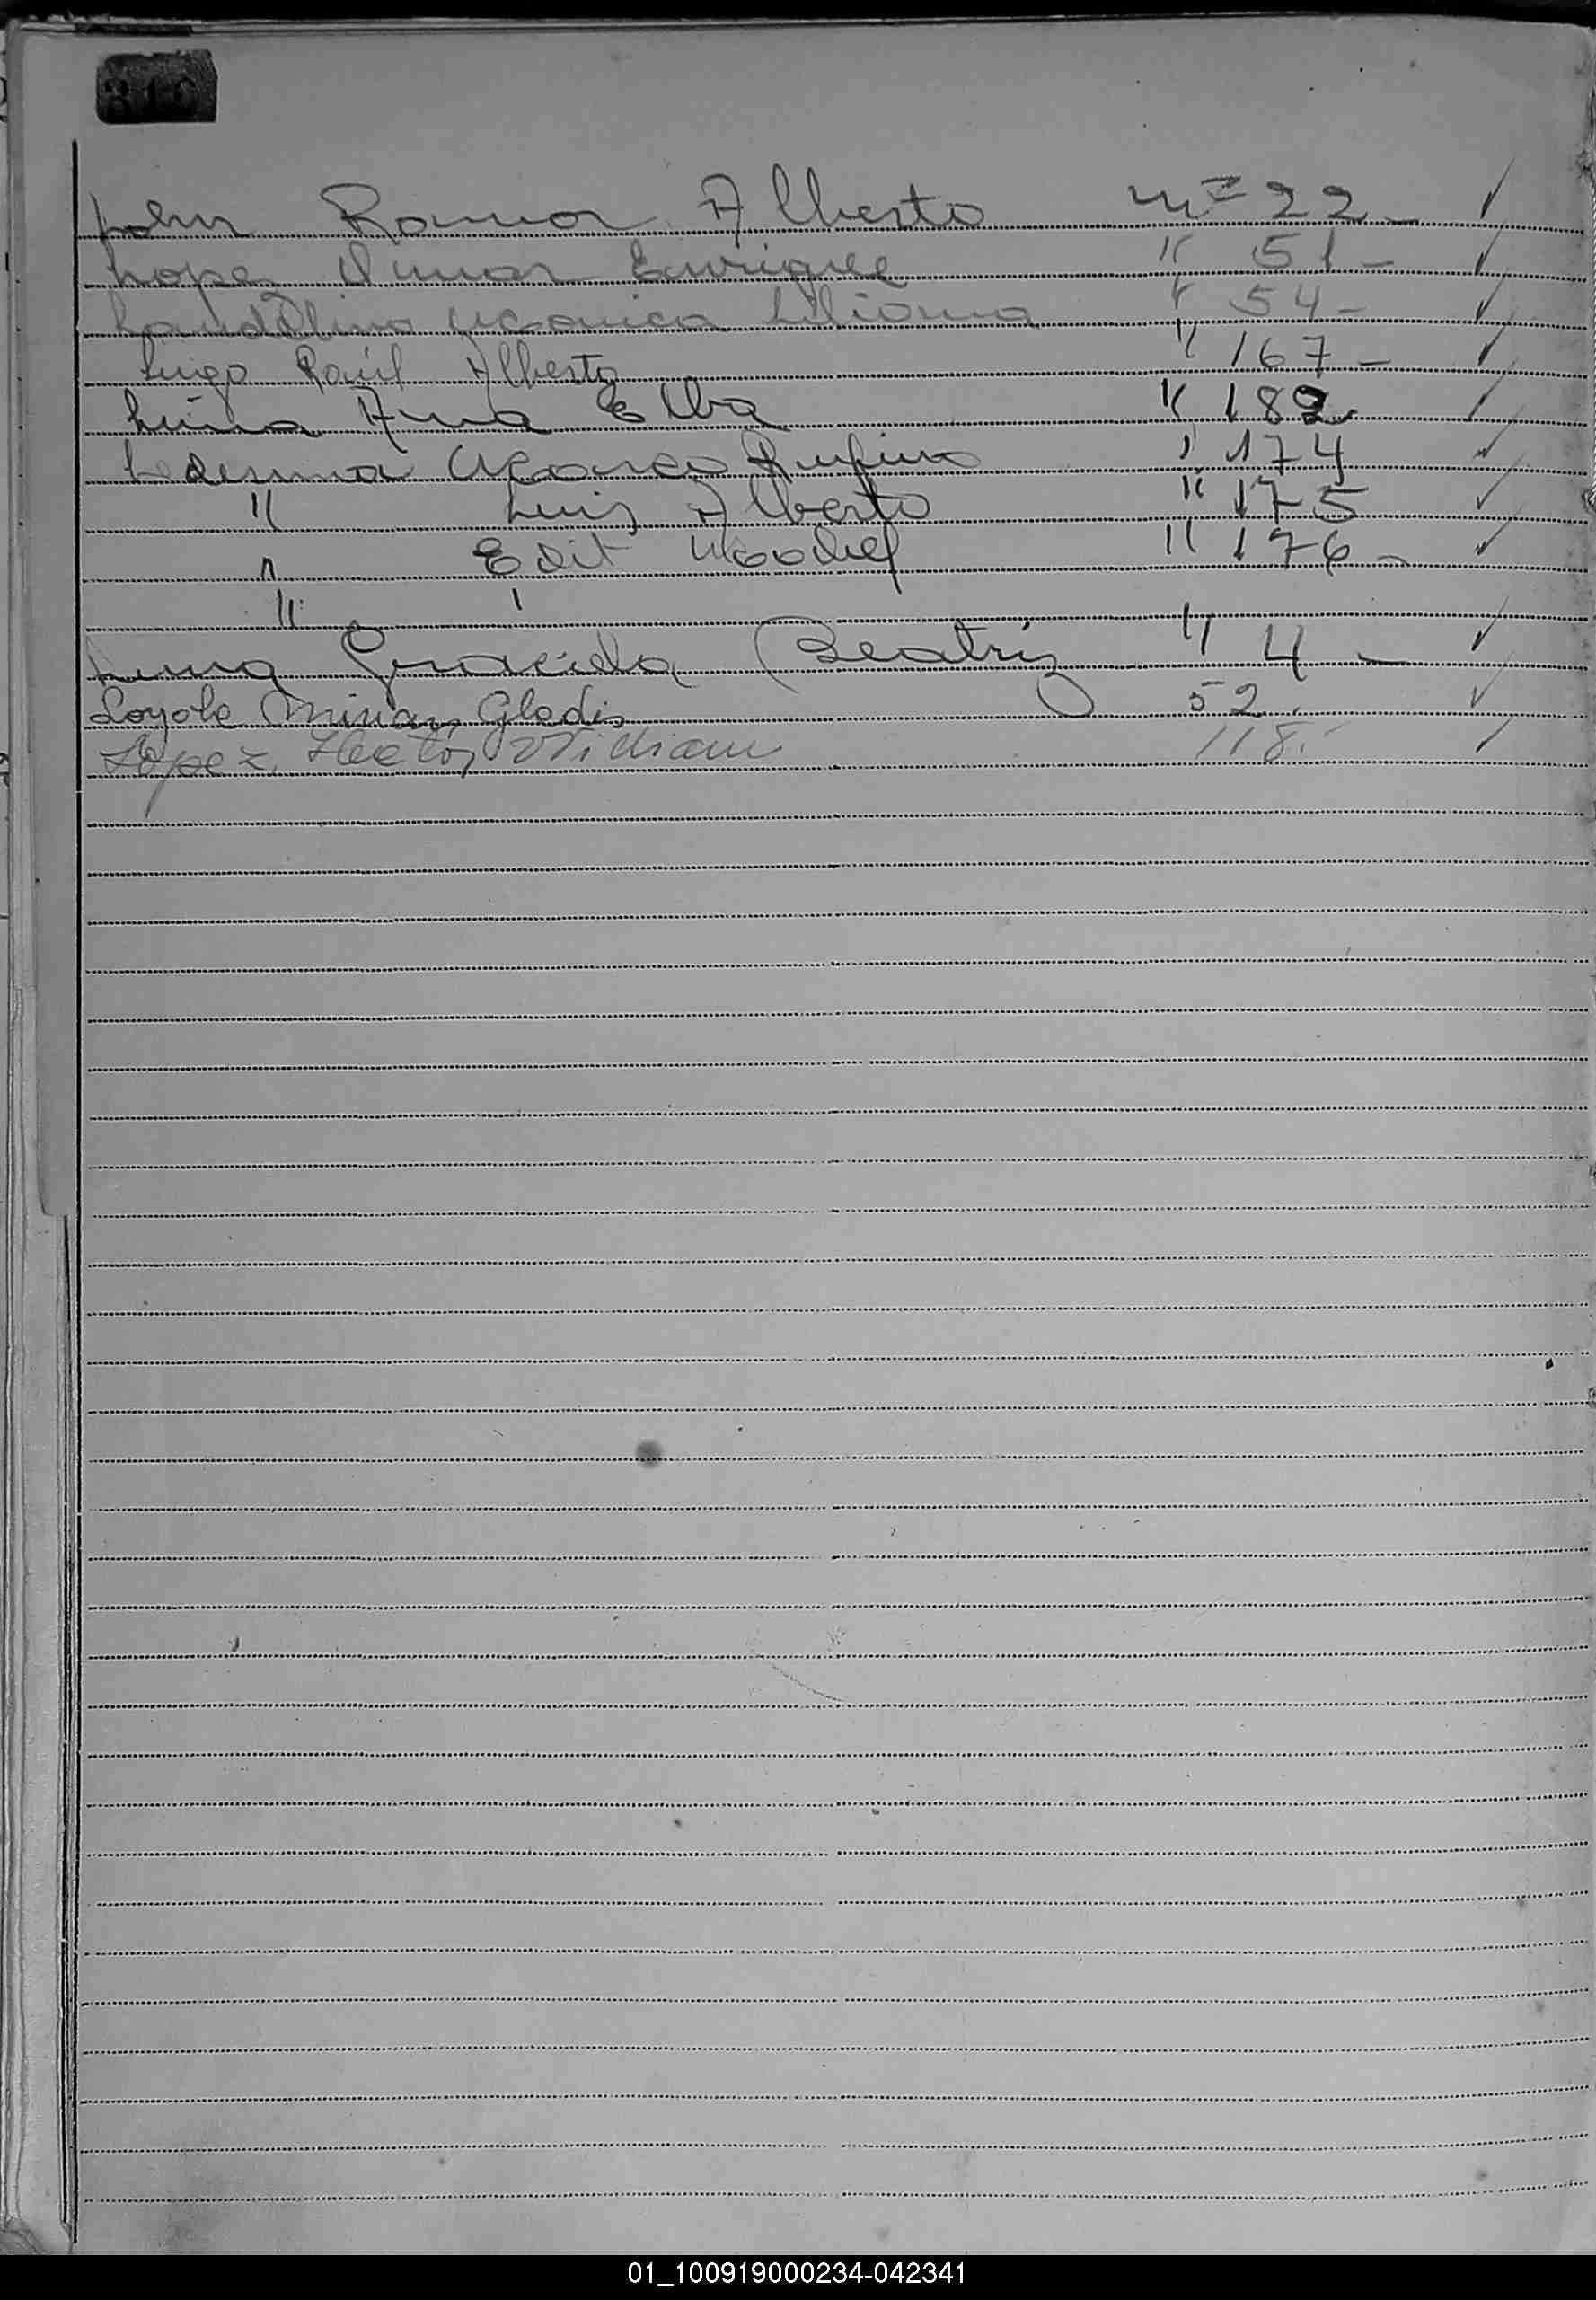 310
Ramon Alberto nº 22 -
Lopez Omar Enrique " 51 -
Landelino Monica Liliana " 54 -
Lugo Raúl Alberto " 167 -
Luna Ana Elba " 182.
Ledesma Marco Rufino " 174
" Luis Alberto " 175
" Edit " 176 -
"
Luna Graciela Beatriz " 4 -
Loyola Mirian Gladis 52.
Lopez, Hector William 118.-
01_100919000234-042341